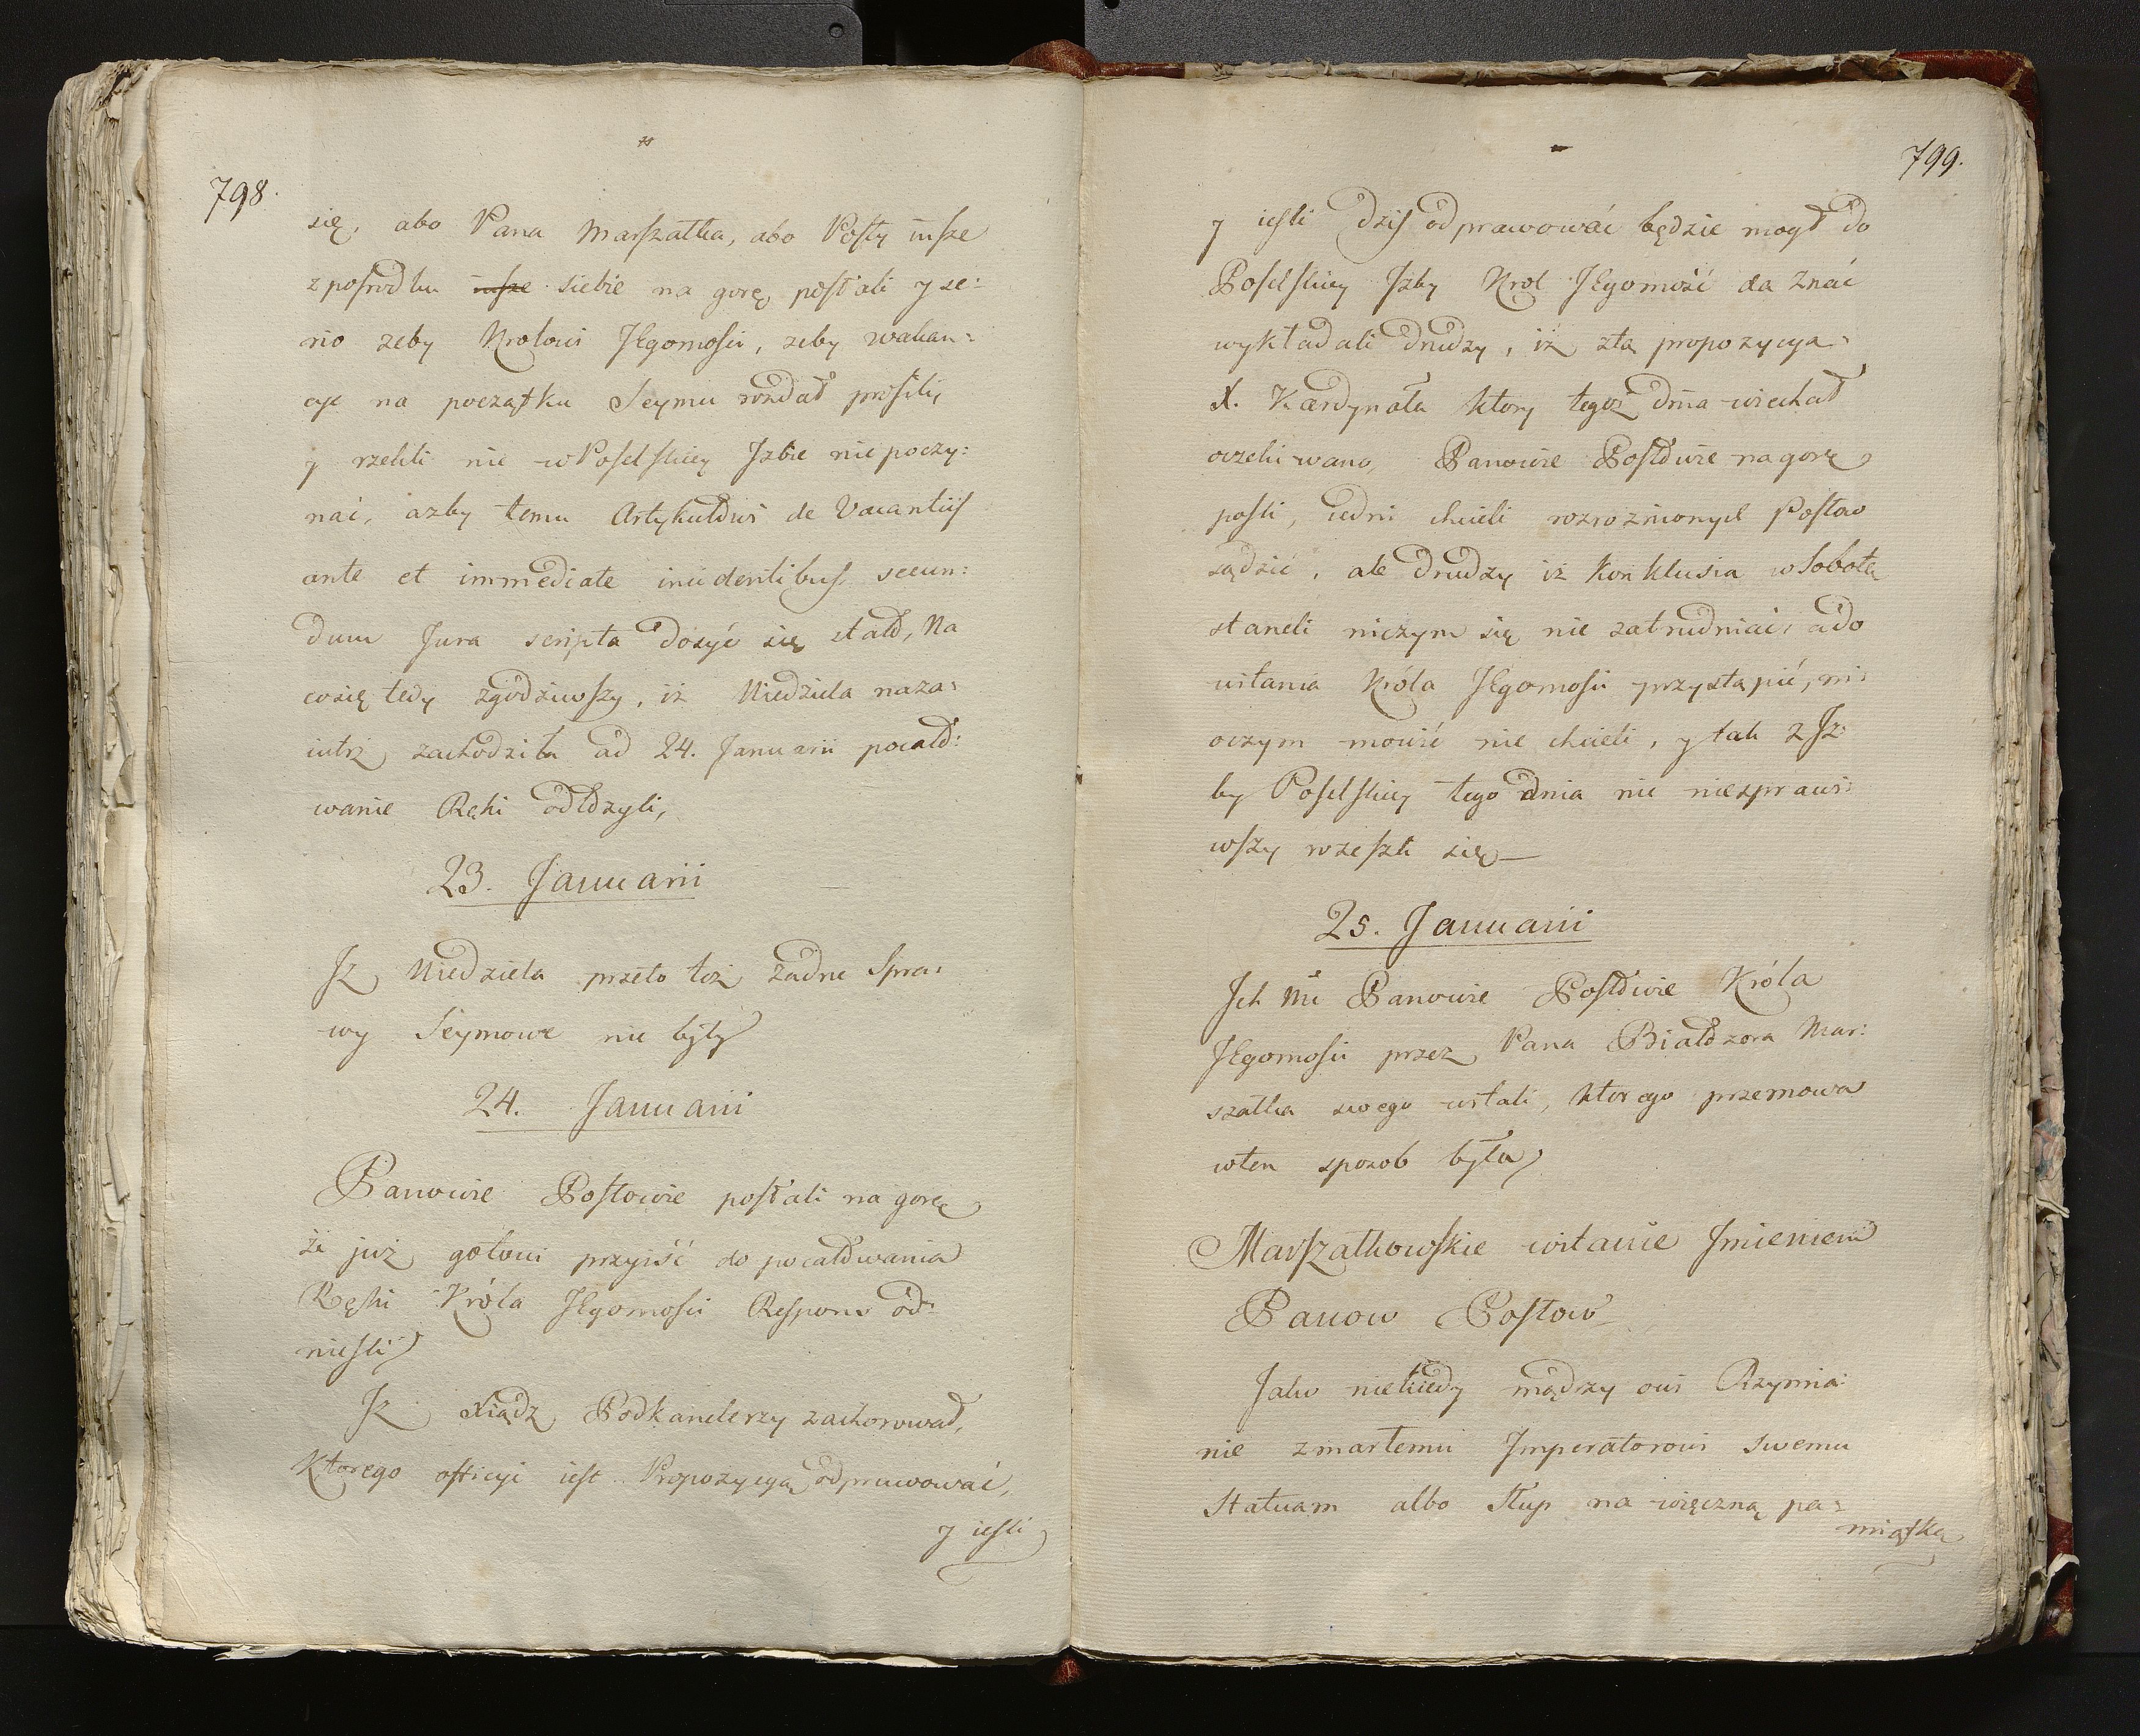 798.
się, abo Pana Marszałka, abo Posły insze
z posrodku insze siebie na gorę posłali y se:
rio zeby Krolowi JEgomosci, zeby wakan:
cye na początku Seymu rozdał prosili,
y rzekli nic w Poselskiey Jzbie nie poczy:
nać, ażby temu Artykułowi de Vacantiis
ante et immediate incidentibus secun:
dum Jura scripta dosyć się stało, Na
co się tedy zgodziwszy, iż Niedziela naza:
iutrz zachodziła ad 24. Januarii pocało:
wanie Ręki odłożyli,
23. Januarii
Jż Niedziela przeto też żadne Spra:
wy Seymowe nie były
24. Januarii
Panowie Posłowie posłali na gorę
że już gotowi przyiść do pocałowania
Ręki Króla JEgomości Respons od:
niesli
Jż Xiądz Podkanclerzy zachorował,
Ktorego officyi iest Propozycyą odprawować,
y iesli
799.
y iesli dzis odprawować będzie mogł do
Poselskiey Jzby Krol JEgomość da znać
wykładali drudzy, iż złą propozycya:
X. Kardynała ktory tegoż dnia wiechał
oczekiwano, Panowie Posłowie na gorę
posli, iedni chcieli rozroznionych Posłow
sądzić, ale drudzy iż konklusia w Sobotę
staneli niczym się nie zatrudniać, a do
witania Króla JEgomosci przystąpić, ni
oczym mowić nie chcieli, y tak z Jz:
by Poselskiey tego dnia nic niesprawi:
wszy rozeszli się—
25. Januarii
Jch Mć Panowie Posłowie Króla
JEgomosci przez Pana Białozora Mar:
szałka swego witali, ktorego przemowa
w ten sposob była,
Marszałkowskie witanie Jmieniem
Panow Posłow
Jako niekiedy mądrzy oni Rzymia:
nie zmarłemu Jmperatorowi swemu
Statuam albo Słup na wieczną pa:
miątkę